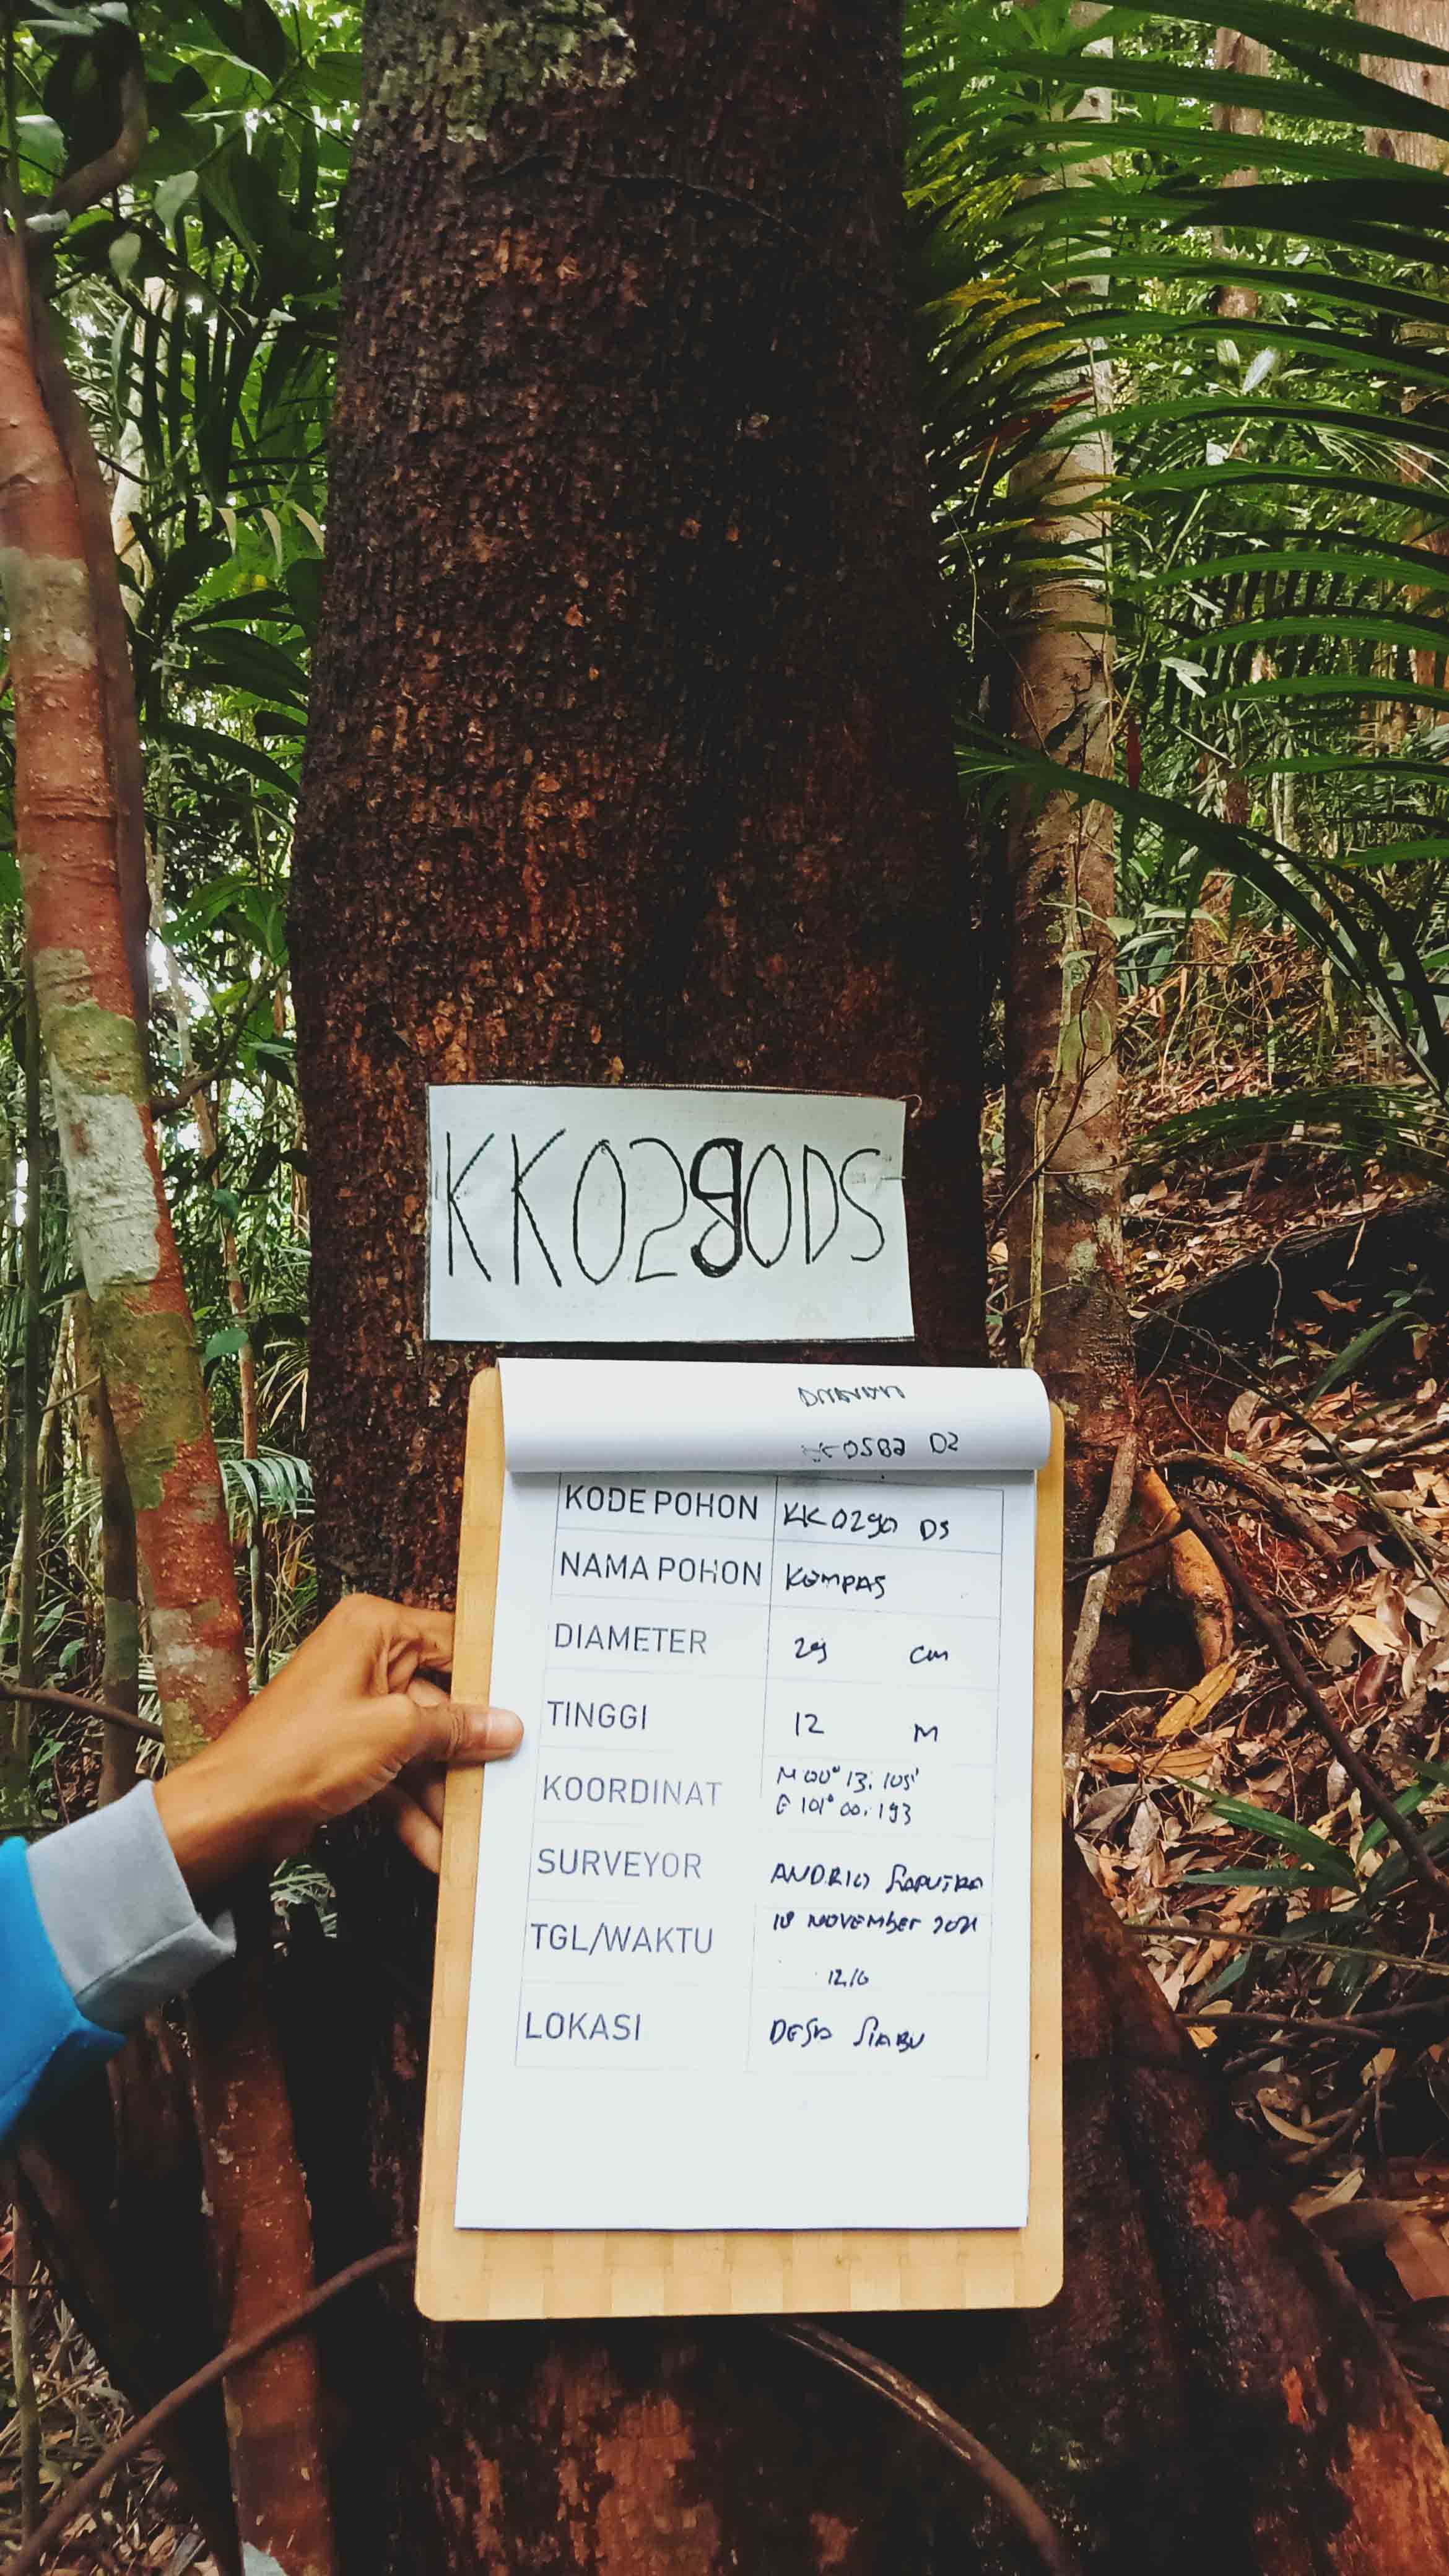 KK0290DS
KODE POHON KK0290 DS
NAMA POHON KEMPAS
DIAMETER 29 cm
TINGGI 12 M
KOORDINAT N 00° 13. 105'
E 101° 00. 193
SURVEYOR ANDRIO SAPUTRA
TGL/WAKTU 18 NOVEMBER 2021
12/6
LOKASI DESA SIABU